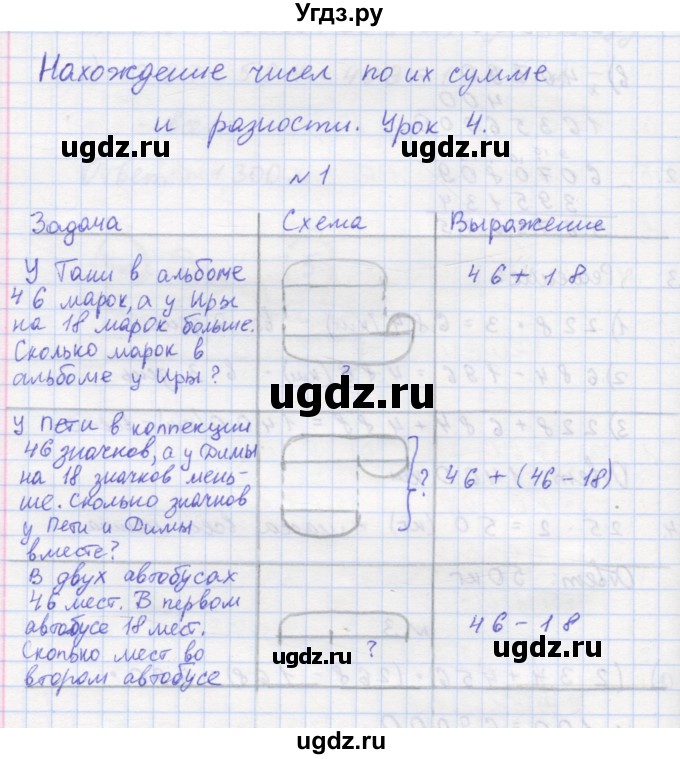 Угдз.ру
Нахождение чисел по их сумме
и разности. Урок 4.
ugdz.ru ugdz.ru
№1
Задача Схема Выражение
У Тани в альбоме
46 марок, а у Иры
на 18 марок больше.
Сколько марок в
альбоме у Иры?
?
46+18
ugdz.ru
У Пети в коллекции
46 значков, а у Димы
на 18 значков мень-
ше. Сколько значков
у Пети и Димы
вместе?
? 46+(46-18)
ugdz.ru ugdz.ru
В двух автобусах
46 мест. В первом
автобусе 18 мест.
Сколько мест во
втором автобусе
?
46-18
ugdz.ru ugdz.ru
ugdz.ru